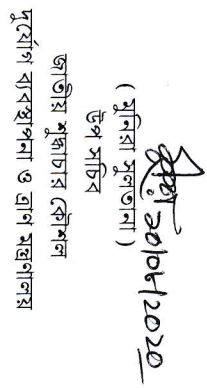 ২০/০৮/২০২০
( মুনিরা সুলতানা )
উপ সচিব
জাতীয় শুদ্ধাচার কৌশল
দুর্যোগ ব্যবস্থাপনা ও ত্রাণ মন্ত্রণালয়